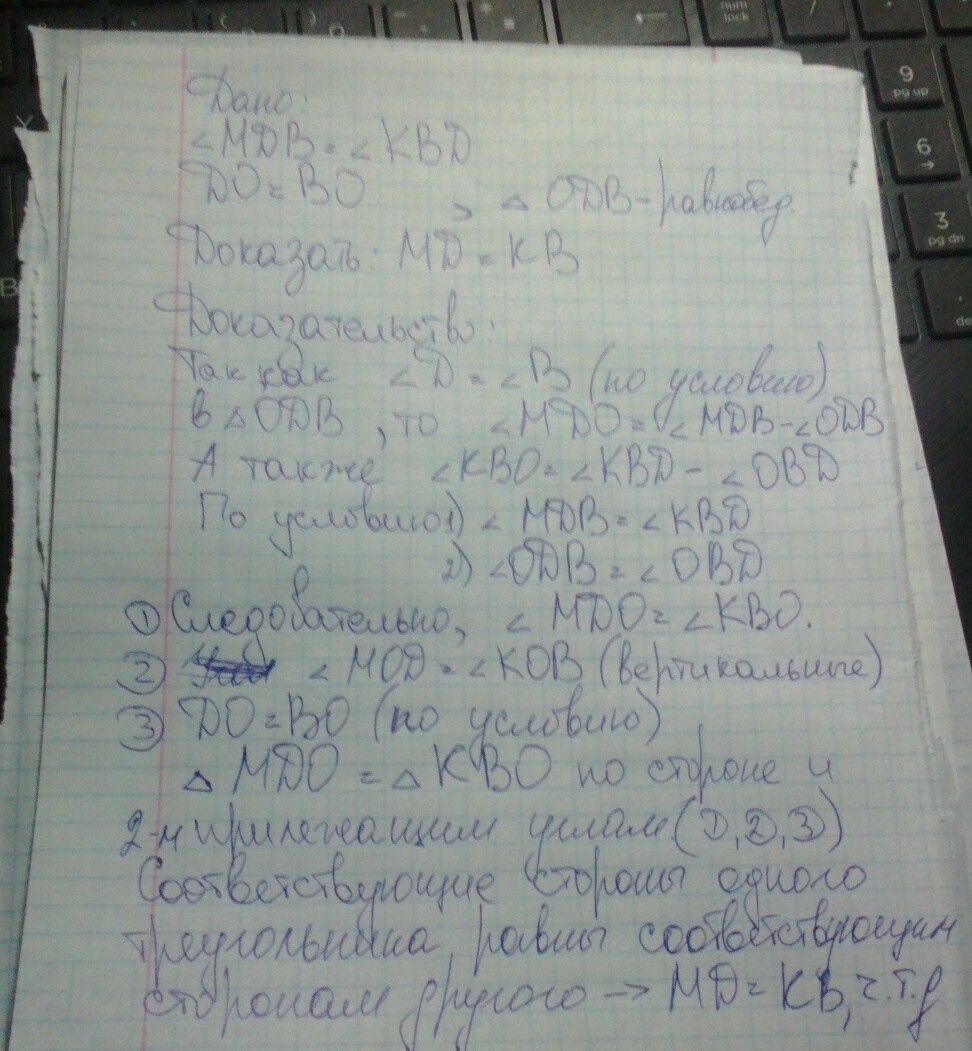 num lock
/
9
pg up
6
→
3
pg dn
Дано:
∠MDB = ∠KBD
DO = BO > △ ODB - равнобед.
Доказать: MD = KB
Доказательство:
Так как ∠D = ∠B (по условию)
в △ODB, то ∠MDO = ∠MDB - ∠ODB
А также ∠KBO = ∠KBD - ∠OBD
По условию 1) ∠MDB = ∠KBD
2) ∠ODB = ∠OBD
① Следовательно, ∠MDO = ∠KBO.
② ∠MOD = ∠KOB (вертикальные)
③ DO = BO (по условию)
△ MDO = △ KBO по стороне и
2-м прилежащим углам (1,2,3)
Соответствующие стороны одного
треугольника равны соответствующим
сторонам другого → MD = KB, ч.т.д